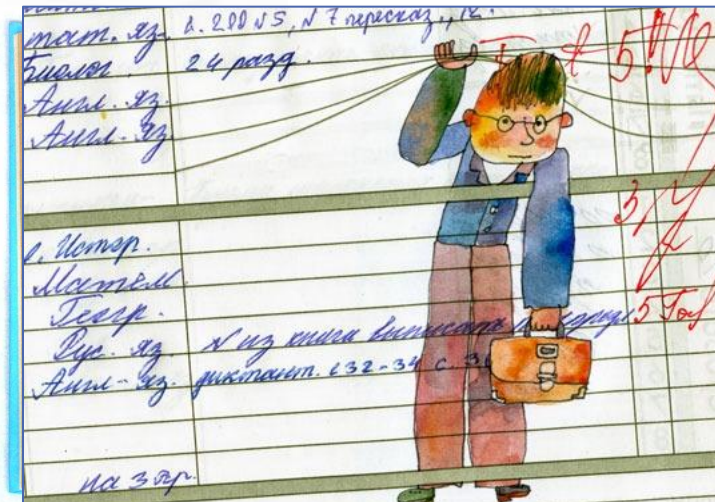 тат. яз. с. 200 N5, N7 пересказ
Биолог. 24 разд. 5
Англ. яз.
Англ. яз.
3
Истор.
Матем.
Геогр. 5
Рус. яз. из книга выписать
Англ-яз. диктант. с 32-34 с. 3
на 3 тр.